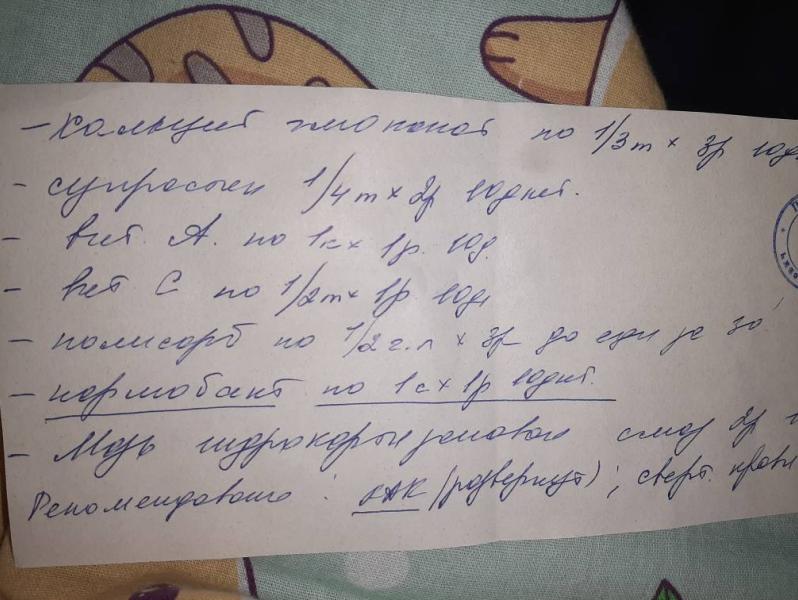 - кальций глюконат по 1/3 т × 3р 10д
- супрастин 1/4 т × 2р 10 дней.
- вит. А. по 1к × 1р. 10д.
- вит С по 1/2 т × 1р 10д
- полисорб по 1/2 ч.л × 3р до еды за 30'
- нормобакт по 1с × 1р 10 дней.
- Мазь гидрокортизоновая смаз 2р
Рекомендовано: ОАК (развернут); сверт. крови